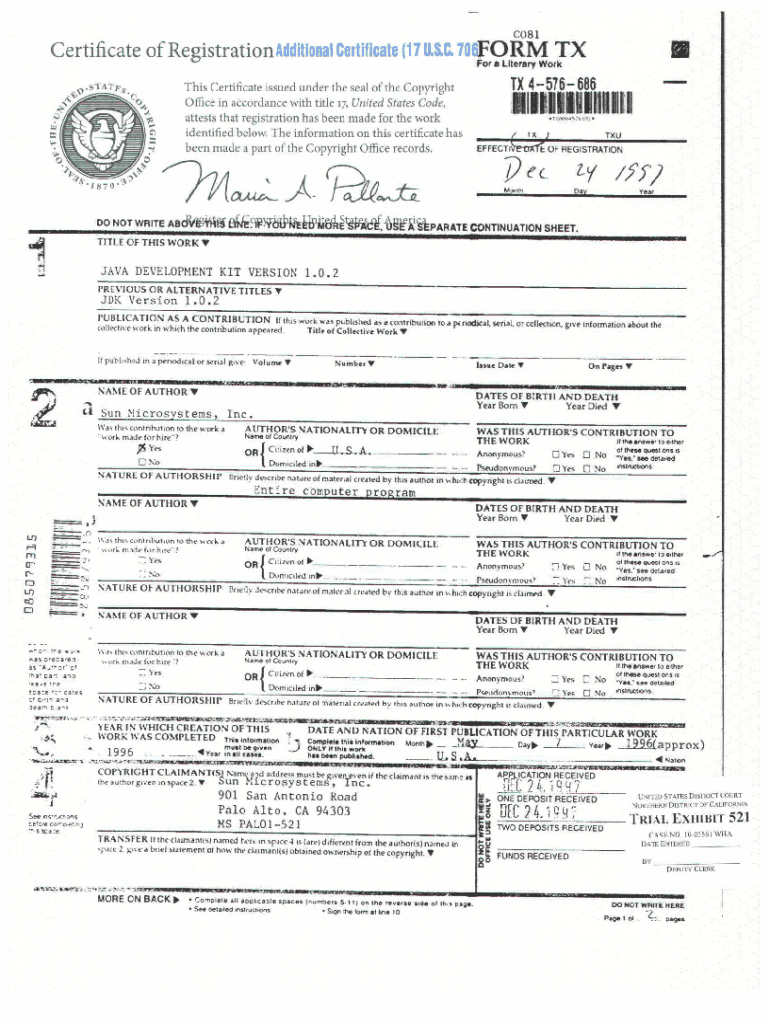 C081
Certificate of Registration Additional Certificate (17 U.S.C. 706
FORM TX
For a Literary Work
TX 4-576-686
This Certificate issued under the seal of the Copyright
Office in accordance with title 17, United States Code,
attests that registration has been made for the work
identified below. The information on this certificate has
been made a part of the Copyright Office records.
UNITED · STATES · COPYRIGHT · OFFICE · SEAL · OF · THE
· 1870 ·
TX TXU
EFFECTIVE DATE OF REGISTRATION
Dec 24 1997
Month Day Year
Maria A. Pallante
Register of Copyrights, United States of America
DO NOT WRITE ABOVE THIS LINE. IF YOU NEED MORE SPACE, USE A SEPARATE CONTINUATION SHEET.
1
TITLE OF THIS WORK ▼
JAVA DEVELOPMENT KIT VERSION 1.0.2
PREVIOUS OR ALTERNATIVE TITLES ▼
JDK Version 1.0.2
PUBLICATION AS A CONTRIBUTION If this work was published as a contribution to a periodical, serial, or collection, give information about the
collective work in which the contribution appeared. Title of Collective Work ▼
If published in a periodical or serial give: Volume ▼ Number ▼ Issue Date ▼ On Pages ▼
2
NAME OF AUTHOR ▼
DATES OF BIRTH AND DEATH
Year Born ▼ Year Died ▼
a Sun Microsystems, Inc.
Was this contribution to the work a
"work made for hire"?
Yes
No
AUTHOR'S NATIONALITY OR DOMICILE
Name of Country
OR { Citizen of ▶ U.S.A.
Domiciled in ▶
WAS THIS AUTHOR'S CONTRIBUTION TO
THE WORK
Anonymous? Yes No
Pseudonymous? Yes No
If the answer to either
of these questions is
"Yes," see detailed
instructions.
NATURE OF AUTHORSHIP Briefly describe nature of material created by this author in which copyright is claimed. ▼
Entire computer program
NAME OF AUTHOR ▼
DATES OF BIRTH AND DEATH
Year Born ▼ Year Died ▼
Was this contribution to the work a
"work made for hire"?
Yes
No
AUTHOR'S NATIONALITY OR DOMICILE
Name of Country
OR { Citizen of ▶
Domiciled in ▶
WAS THIS AUTHOR'S CONTRIBUTION TO
THE WORK
Anonymous? Yes No
Pseudonymous? Yes No
If the answer to either
of these questions is
"Yes," see detailed
instructions.
NATURE OF AUTHORSHIP Briefly describe nature of material created by this author in which copyright is claimed. ▼
085079315
NAME OF AUTHOR ▼
DATES OF BIRTH AND DEATH
Year Born ▼ Year Died ▼
Was this contribution to the work a
"work made for hire"?
Yes
No
AUTHOR'S NATIONALITY OR DOMICILE
Name of Country
OR { Citizen of ▶
Domiciled in ▶
WAS THIS AUTHOR'S CONTRIBUTION TO
THE WORK
Anonymous? Yes No
Pseudonymous? Yes No
If the answer to either
of these questions is
"Yes," see detailed
instructions.
NATURE OF AUTHORSHIP Briefly describe nature of material created by this author in which copyright is claimed. ▼
whom the work
was prepared)
as "Author" of
that part, and
leave the
space for dates
of birth and
death blank
YEAR IN WHICH CREATION OF THIS
WORK WAS COMPLETED This information
must be given
in all cases.
1996 ◀ Year
DATE AND NATION OF FIRST PUBLICATION OF THIS PARTICULAR WORK
Complete this information
ONLY if this work
has been published.
Month ▶ May Day ▶ 7 Year ▶ 1996(approx)
U.S.A. ◀ Nation
4
See instructions
before completing
this space
COPYRIGHT CLAIMANT(S) Name and address must be given even if the claimant is the same as
the author given in space 2. ▼
Sun Microsystems, Inc.
901 San Antonio Road
Palo Alto, CA 94303
MS PAL01-521
TRANSFER If the claimant(s) named here in space 4 is (are) different from the author(s) named in
space 2, give a brief statement of how the claimant(s) obtained ownership of the copyright. ▼
DO NOT WRITE HERE
OFFICE USE ONLY
APPLICATION RECEIVED
DEC 24.1997
ONE DEPOSIT RECEIVED
DEC 24.1997
TWO DEPOSITS RECEIVED
FUNDS RECEIVED
UNITED STATES DISTRICT COURT
NORTHERN DISTRICT OF CALIFORNIA
TRIAL EXHIBIT 521
CASE NO. 10-03561 WHA
DATE ENTERED
BY
DEPUTY CLERK
MORE ON BACK ▶ • Complete all applicable spaces (numbers 5-11) on the reverse side of this page.
• See detailed instructions • Sign the form at line 10
DO NOT WRITE HERE
Page 1 of 2 pages